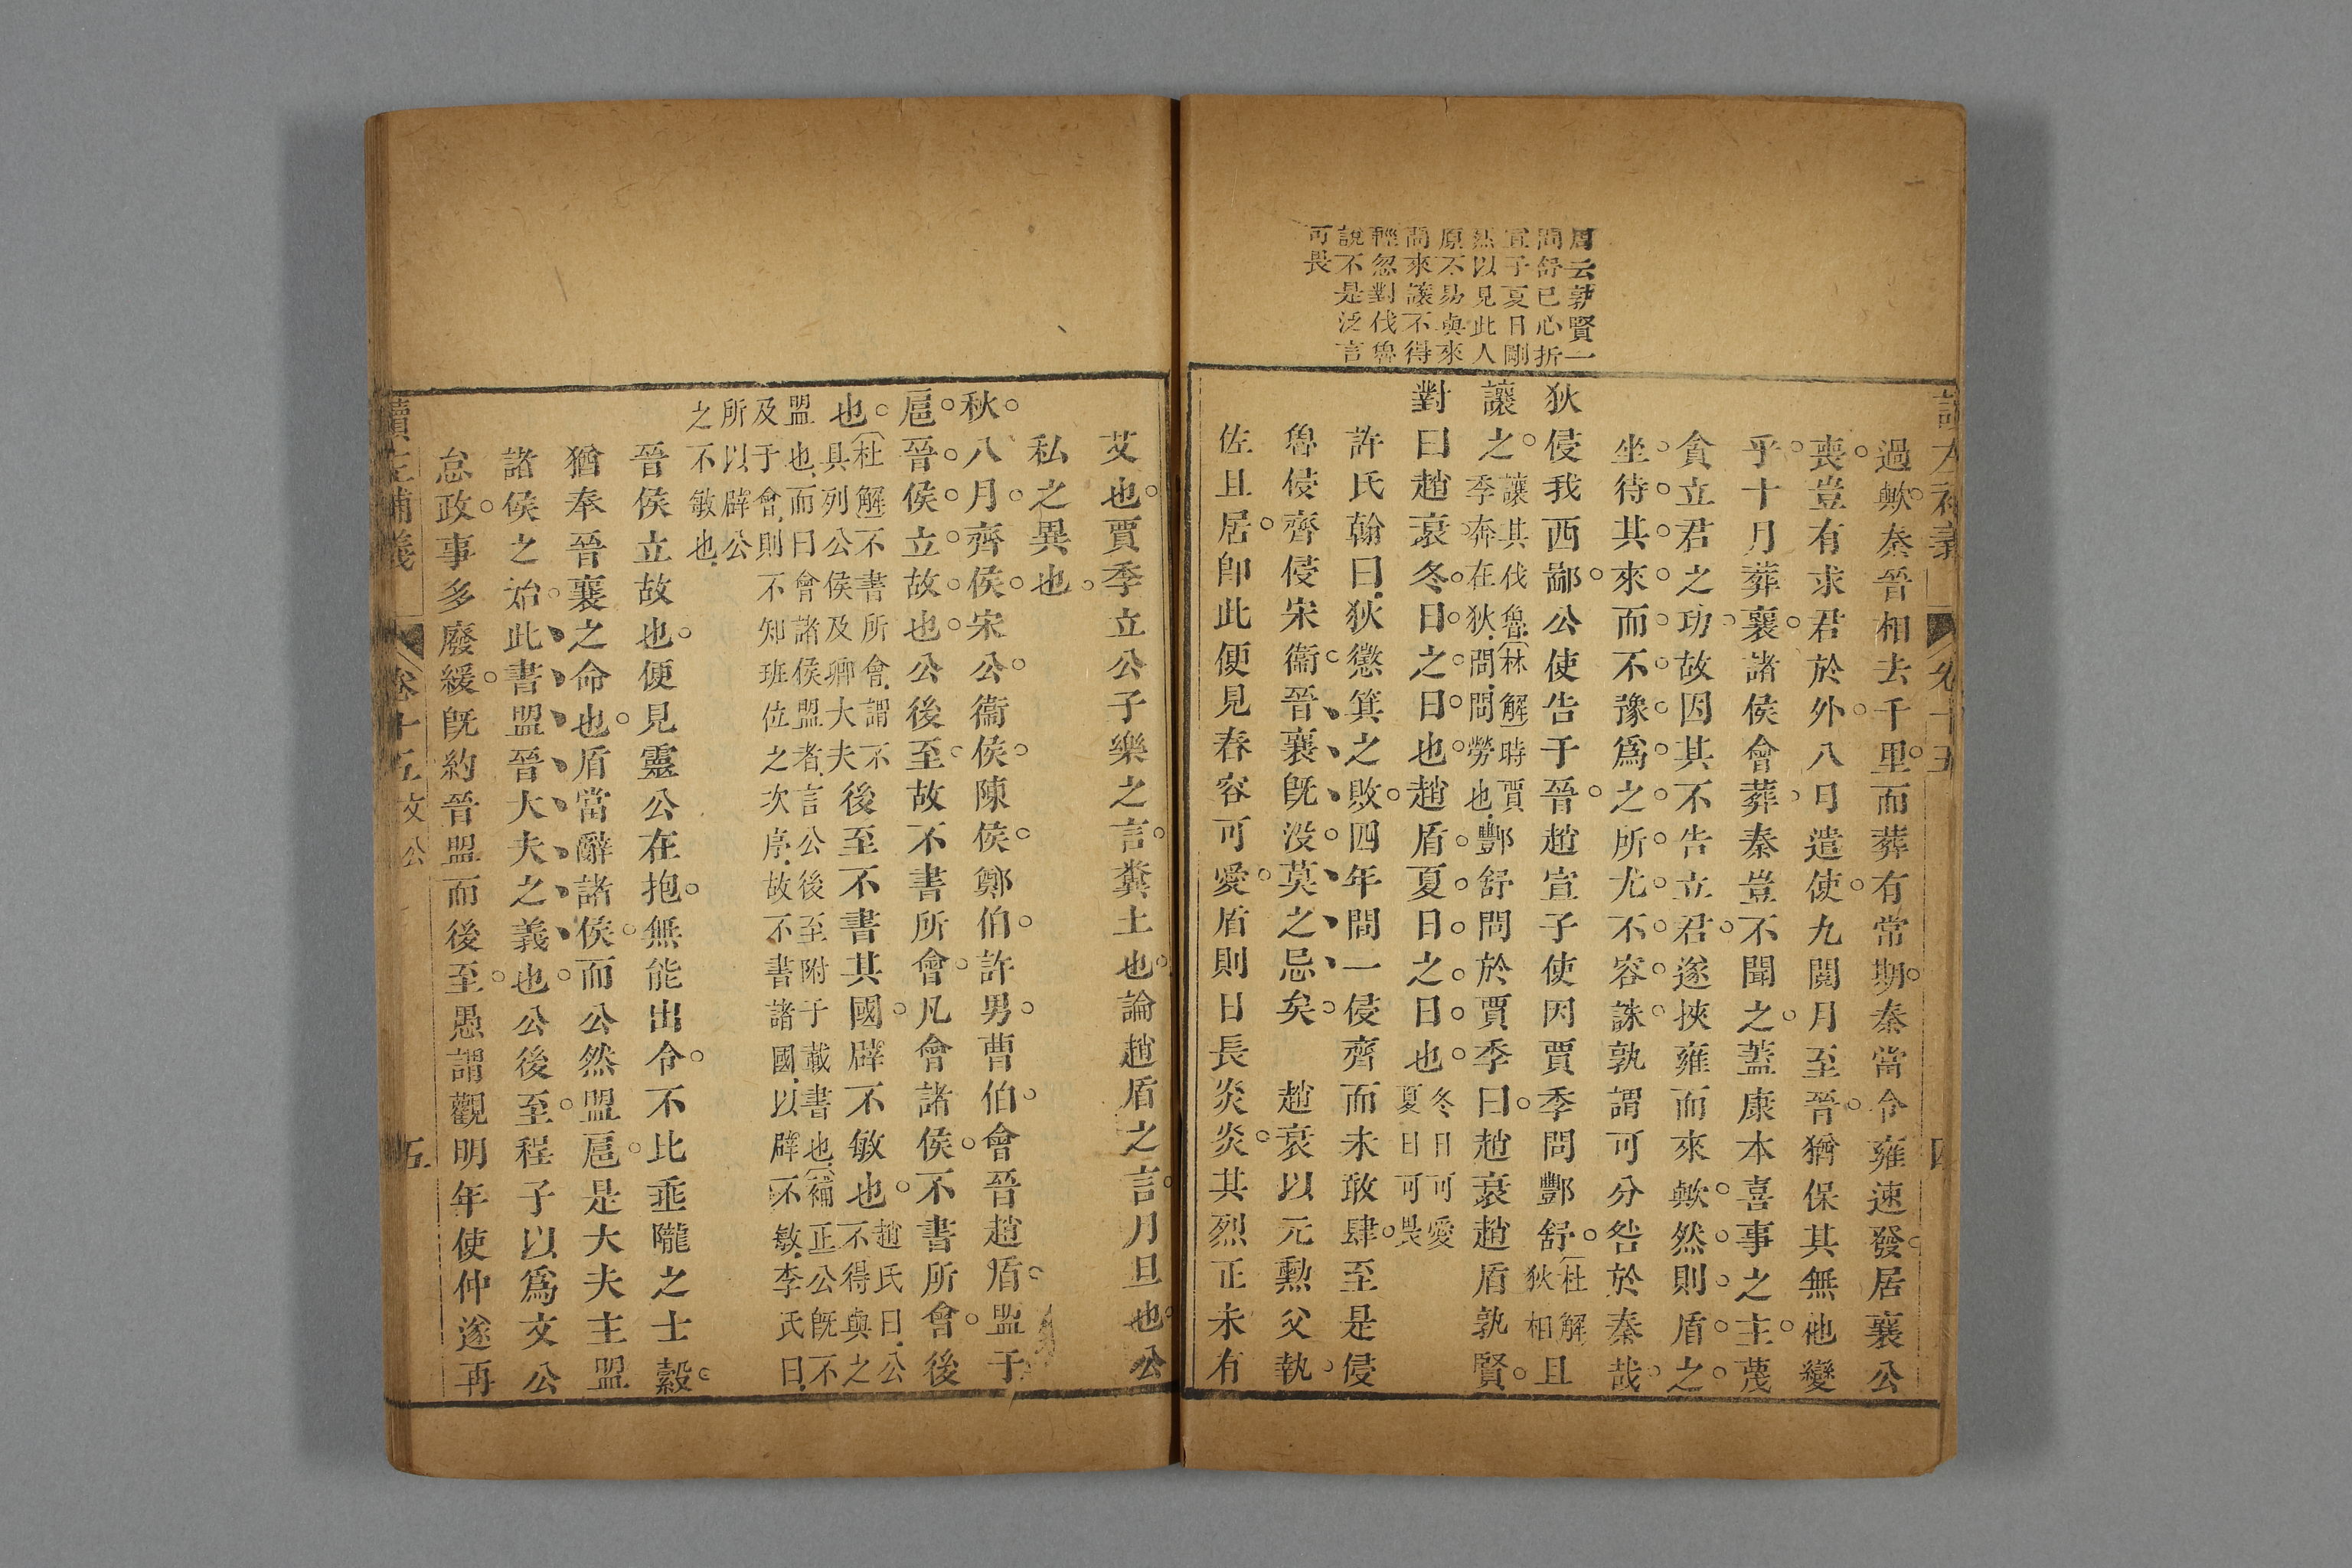 周云孰賢一
問舒已心折
宣子夏日剛
烈以見此人
原不易與來
問來讓不得
輕忽對伐魯
說不是泛言
可畏
過歟秦晉相去千里而葬有常期秦當令雍速發居襄公
喪豈有求君於外八月遣使九閱月至晉猶保其無他變
乎十月葬襄諸侯會葬秦豈不聞之蓋康本喜事之主蔑
貪立君之功故因其不告立君遂挾雍而來歟然則盾之
坐待其來而不豫爲之所尤不容誅孰謂可分咎於秦哉
狄侵我西鄙公使告于晉趙宣子使因賈季問酆舒杜解狄相且
讓之讓其伐魯林解時賈季奔在狄問問勞也酆舒問於賈季曰趙衰趙盾孰賢
對曰趙衰冬日之日也趙盾夏日之日也冬日可愛夏日可畏
許氏翰曰狄懲箕之敗四年間一侵齊而未敢肆至是侵
魯侵齊侵宋衞晉襄旣没莫之忌矣 趙衰以元勳父執
佐且居卽此便見春容可愛盾則日長炎炎其烈正未有
艾也賈季立公子樂之言糞土也論趙盾之言月旦也公
私之異也
秋八月齊侯宋公衞侯陳侯鄭伯許男曹伯會晉趙盾盟于
扈晉侯立故也公後至故不書所會凡會諸侯不書所會後
也杜解不書所會謂不具列公侯及卿大夫後至不書其國辟不敏也趙氏曰公不得與之
盟也而曰會諸侯盟者言公後至附于載書也補正公旣不
及于會則不知班位之次序故不書諸國以辟不敏李氏曰
所以辟公
之不敏也
晉侯立故也便見靈公在抱無能出令不比垂隴之士縠
猶奉晉襄之命也盾當辭諸侯而公然盟扈是大夫主盟
諸侯之始此書盟晉大夫之義也公後至程子以爲文公
怠政事多廢緩旣約晉盟而後至愚謂觀明年使仲遂再
讀左補義 卷十五 文公 五